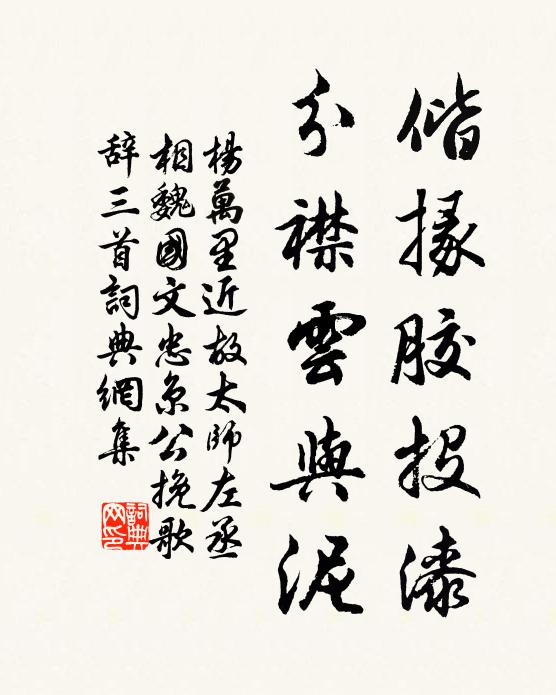 偕掾膠投漆
分襟雲與泥
楊萬里近故太師左丞
相魏國文忠京公挽歌
辞三首詞典網集
詞典
网印